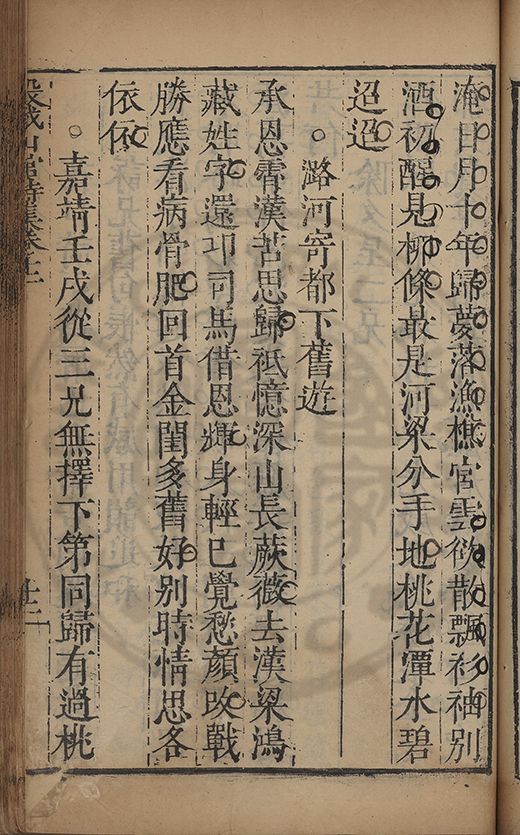 淹日月十年歸夢落漁樵官雲欲散飄衫袖別
酒初醒見柳條最是河梁分手地桃花潭水碧
迢迢
潞河寄都下舊遊
承恩霄漢苦思歸祇憶深山長蕨薇去漢梁鴻
藏姓字還卭司馬借恩輝身輕已覺愁顏改戰
勝應看病骨肥回首金閨多舊好別時情思各
依依
嘉靖壬戌從三兄無擇下第同歸有過桃